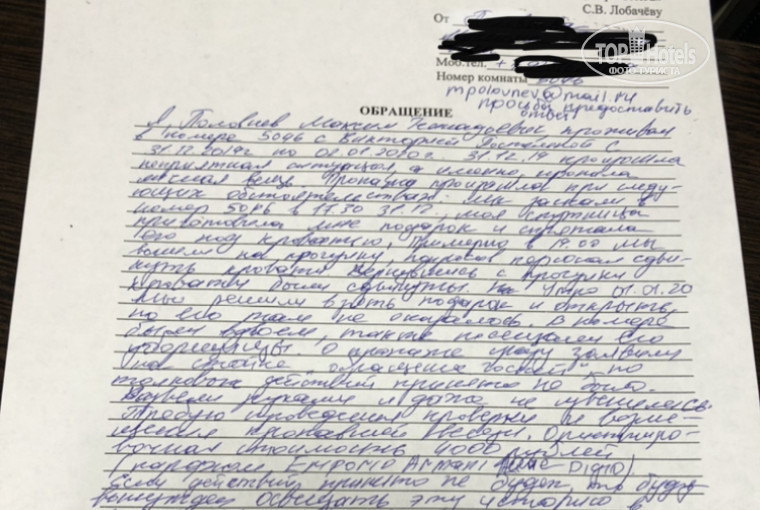 С.В. Лобачёву
От
TOP Hotels
ФОТО ТУРИСТА
Моб.тел. +
Номер комнаты 5096
mpolovnev@mail.ru
просьба предоставить
ответ
ОБРАЩЕНИЕ
Я, Половнев Максим Геннадьевич, проживал
в номере 5096 с Викторией с
31.12.2019г. по 02.01.2020г. 31.12.19 произошла
неприятная ситуация, а именно, пропала
личная вещь. Пропажа произошла при следу-
ющих обстоятельствах: мы заехали в
номер 5096 в 17.30 31.12., моя спутница
приготовила мне подарок и спрятала
его под кроватью, примерно в 19.00 мы
вышли на прогулку, попросив персонал сдви-
нуть кровати. Вернувшись с прогулки
кровати были сдвинуты. На утро 01.01.20
мы решили взять подарок и открыть,
но его там не оказалось. В номере
были вдвоем, также посещали его
уборщицы. О пропаже сразу заявили
на стойке "обращение гостей", но
толковых действий принято не было.
Развели руками и даже не извинились.
Требую проведения проверки и возме-
щения пропавшей вещи. Ориентиро-
вочная стоимость 4000 рублей
(парфюм Emporio Armani Digio).
Если действий принято не будет, то буду
вынужден освещать эту историю в